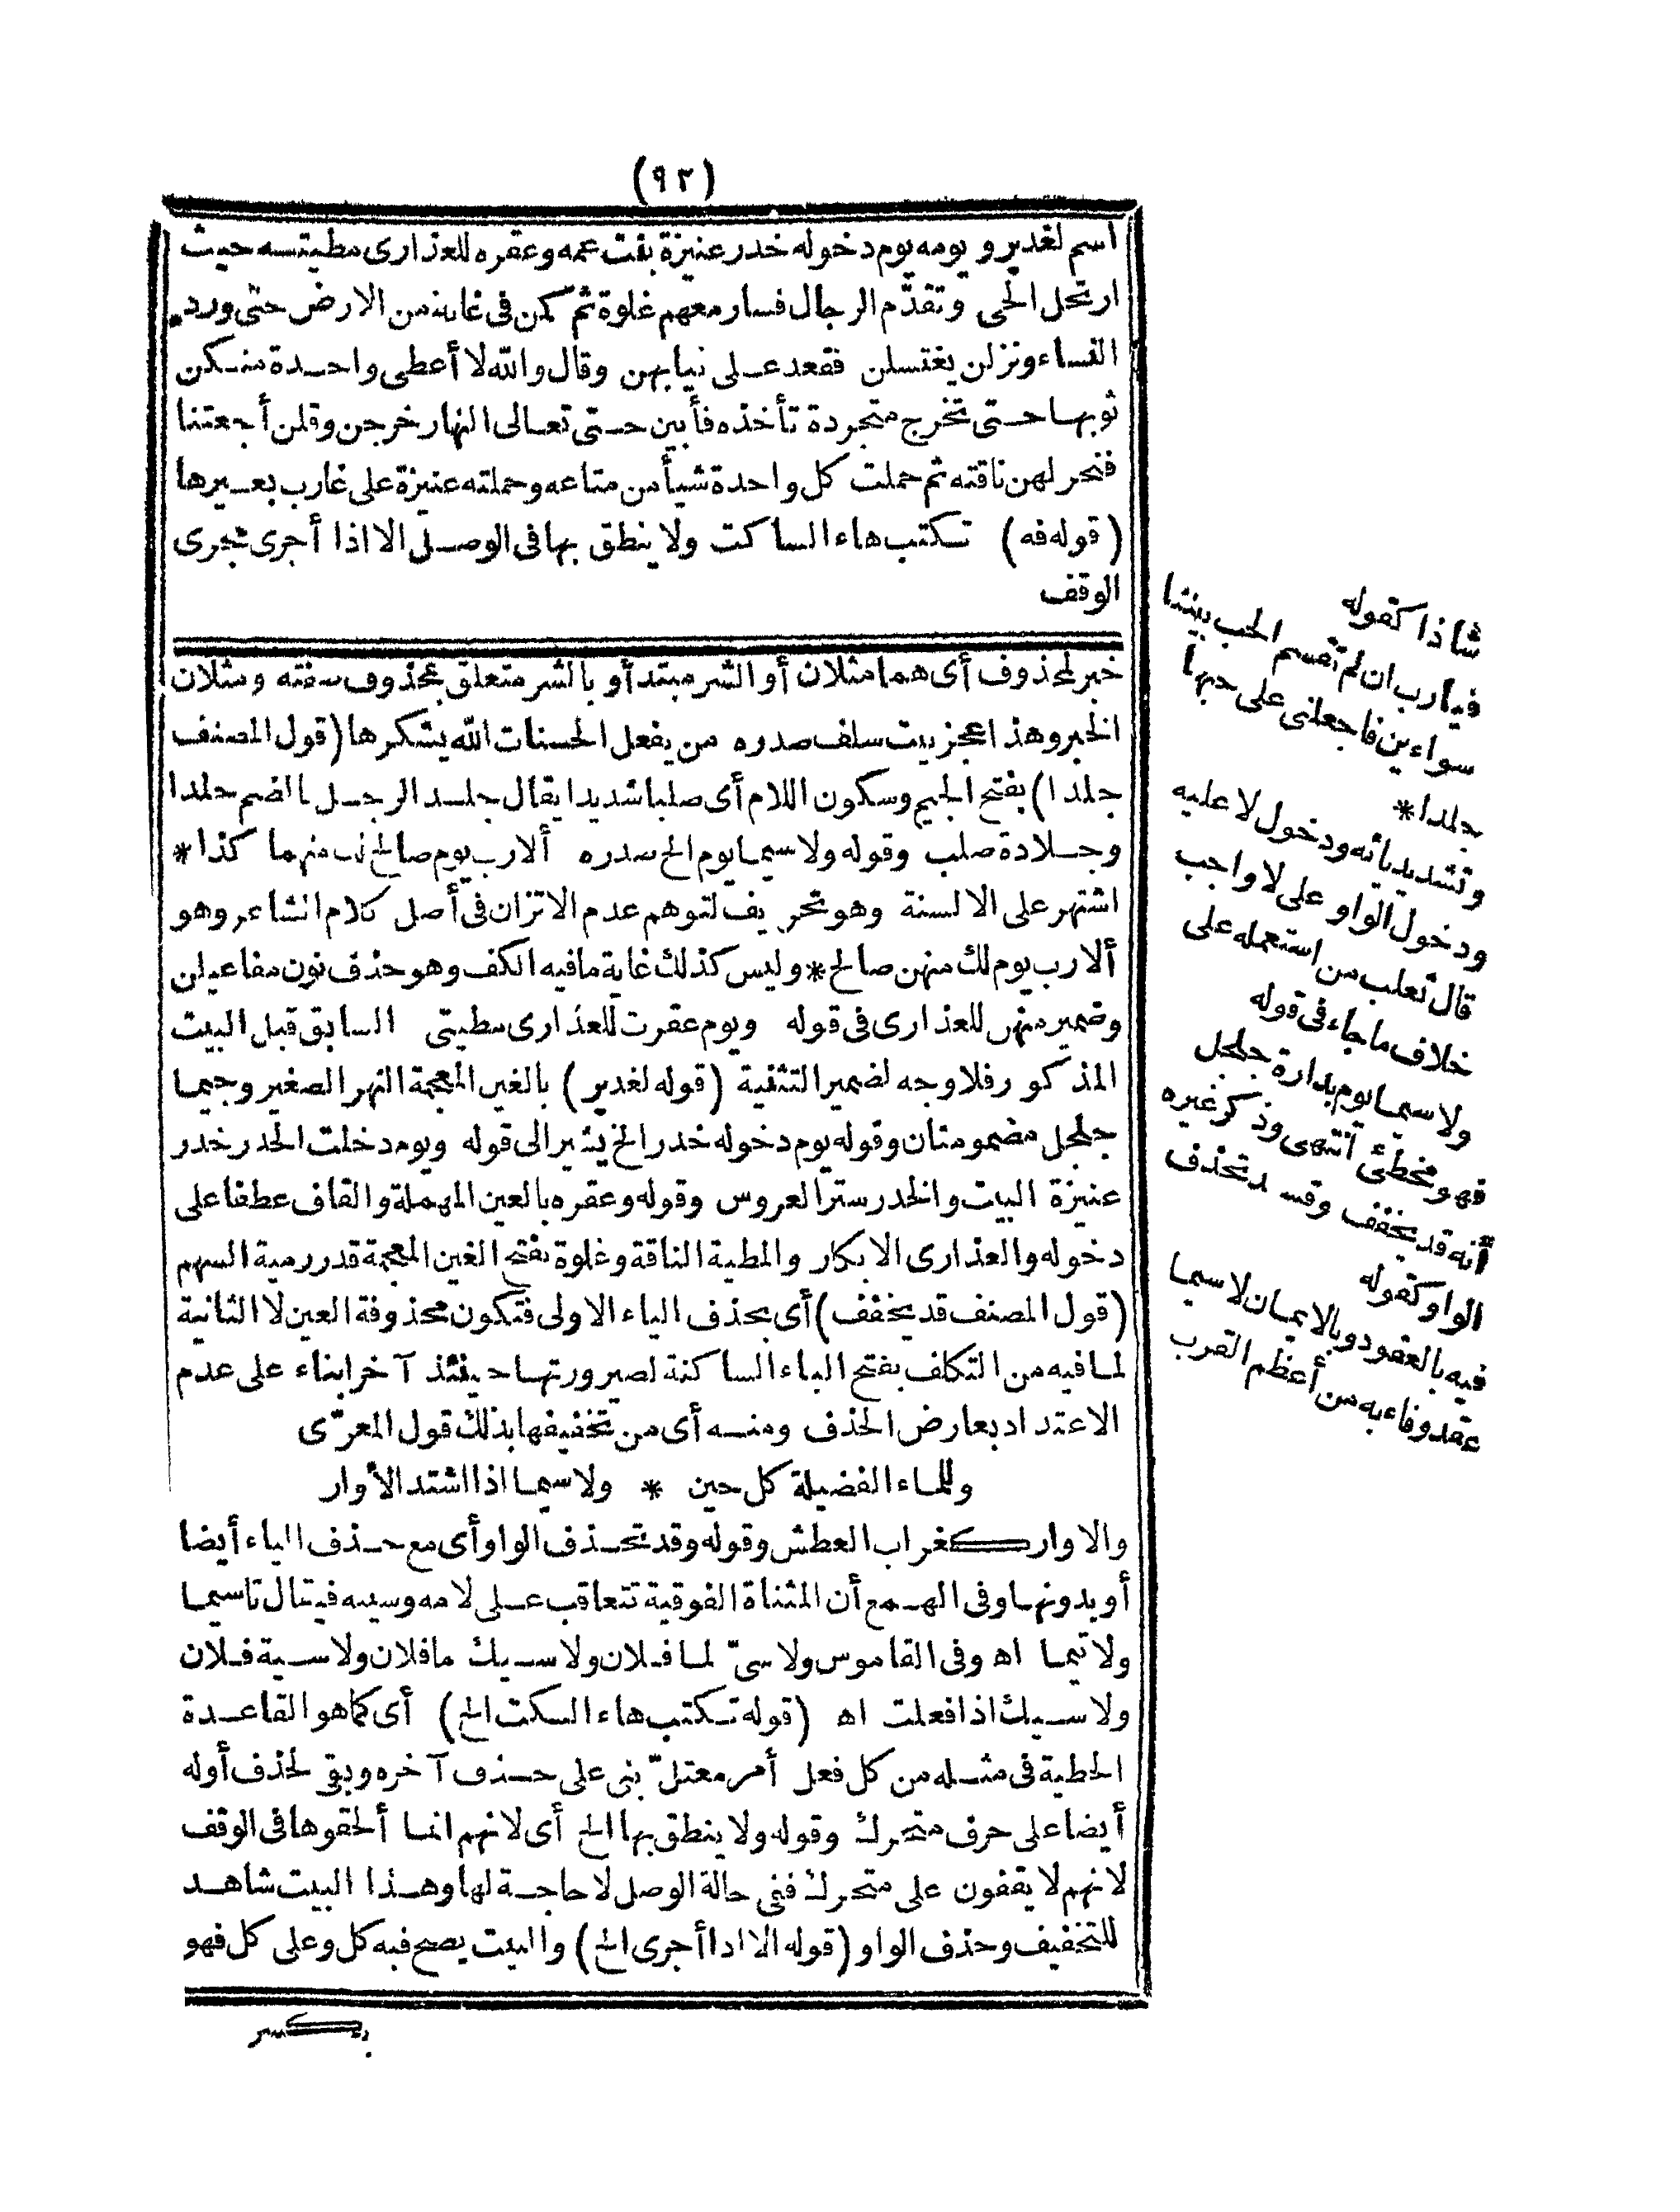 (٩٢)
اسم لغدير ويومه يوم دخوله خدر عنيزة بنت عمه وعقره للعذارى مطيته حيث
ارتحل الحى وتقدّم الرجال فسار معهم غلوة ثم كمن فى غابة من الارض حتى ورد
النساء ونزلن يغتسلن فقعد على ثيابهن وقال والله لا أعطى واحدة منكن
ثوبها حتى تخرج متجردة تأخذه فأبين حتى تعالى النهار خرجن وقلن أجعتنا
فنحر لهن ناقته ثم حملت كل واحدة شيأ من متاعه وحملته عنيزة على غارب بعيرها
(قوله فه) تكتب هاء الساكت ولا ينطق بها فى الوصل الا اذا أجرى مجرى
الوقف
خبر لمحذوف أى هما مثلان أو الشر مبتدأ وبالشر متعلق بمحذوف صفته ومثلان
الخبر وهذا عجز بيت سلف صدره من يفعل الحسنات الله يشكرها (قول المصنف
جلدا) بفتح الجيم وسكون اللام أى صلبا شديدا يقال جلد الرجل بالضم جلدا
وجلادة صلب وقوله ولا سيما يوم الخ صدره ألا رب يوم صالح لك منهما كذا *
اشتهر على الالسنة وهو تحريف لتوهم عدم الاتزان فى أصل كلام الشاعر وهو
ألا رب يوم لك منهن صالح * وليس كذلك غاية ما فيه الكف وهو حذف نون مفاعيلن
وضمير منهن للعذارى فى قوله ويوم عقرت للعذارى مطيتى السابق قبل البيت
المذكور فلا وجه لضمير التثنية (قوله لغدير) بالغين المعجمة النهر الصغير وجيما
جلجل مضمومتان وقوله يوم دخوله خدر الخ يشير الى قوله ويوم دخلت الخدر خدر
عنيزة البيت والخدر ستر العروس وقوله وعقره بالعين المهملة والقاف عطفا على
دخوله والعذارى الابكار والمطية الناقة وغلوة بفتح الغين المعجمة قدر رمية السهم
(قول المصنف قد يخفف) أى بحذف الياء الاولى فتكون محذوفة العين لا الثانية
لما فيه من التكلف بفتح الياء الساكنة لصيرورتها حينئذ آخرا بناء على عدم
الاعتداد بعارض الحذف ومنه أى من تخفيفها بذلك قول المعرّى
وللماء الفضيلة كل حين * ولا سيما اذا اشتد الأوار
والاوار كغراب العطش وقوله وقد تحذف الواو أى مع حذف الياء أيضا
أو بدونها وفى الهمع أن المثناة الفوقية تتعاقب على لامه وسينه فيقال تاسيما
ولا تيما اه وفى القاموس ولا سىّ لما فلان ولا سيك ما فلان ولا سية فلان
ولا سيك اذا فعلت اه (قوله تكتب هاء السكت الخ) أى كما هو القاعدة
الخطية فى مثله من كل فعل أمر معتلّ بنى على حذف آخره وبقى لحذف أوله
أيضا على حرف متحرك وقوله ولا ينطق بها الخ أى لانهم انما ألحقوها فى الوقف
لانهم لا يقفون على متحرك ففى حالة الوصل لا حاجة لها وهذا البيت شاهد
للتخفيف وحذف الواو (قوله الا اذا أجرى الخ) والبيت يصح فيه كل وعلى كل فهو
شاذا كقوله
فيارب ان لم تقسم الحب بيننا
سواءين فاجعلنى على حبها
جلدا *
وتشديد يائه ودخول لا عليه
ودخول الواو على لا واجب
قال ثعلب من استعمله على
خلاف ما جاء فى قوله
ولا سيما يوم بدارة جلجل
فهو مخطئ انتهى وذكر غيره
أنه قد يخفف وقد تحذف
الواو كقوله
فيه بالعقود وبالايمان لا سيما
عقد وفاء به من أعظم القرب